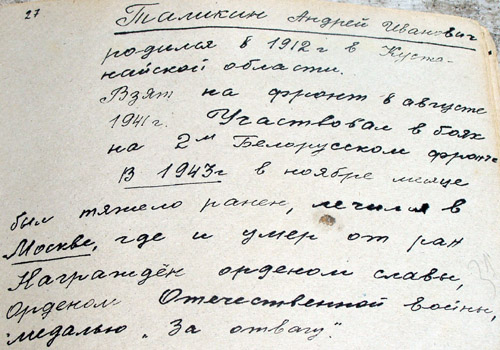 27
Таликин Андрей Иванович
родился в 1912 г в Куста-
найской области.
Взят на фронт в августе
1941 г. Участвовал в боях
на 2м Белорусском фронте
В 1943 г в ноябре месяце
был тяжело ранен, лечился в
Москве, где и умер от ран
Награждён орденом славы,
Орденом Отечественной войны,
медалью „За отвагу".